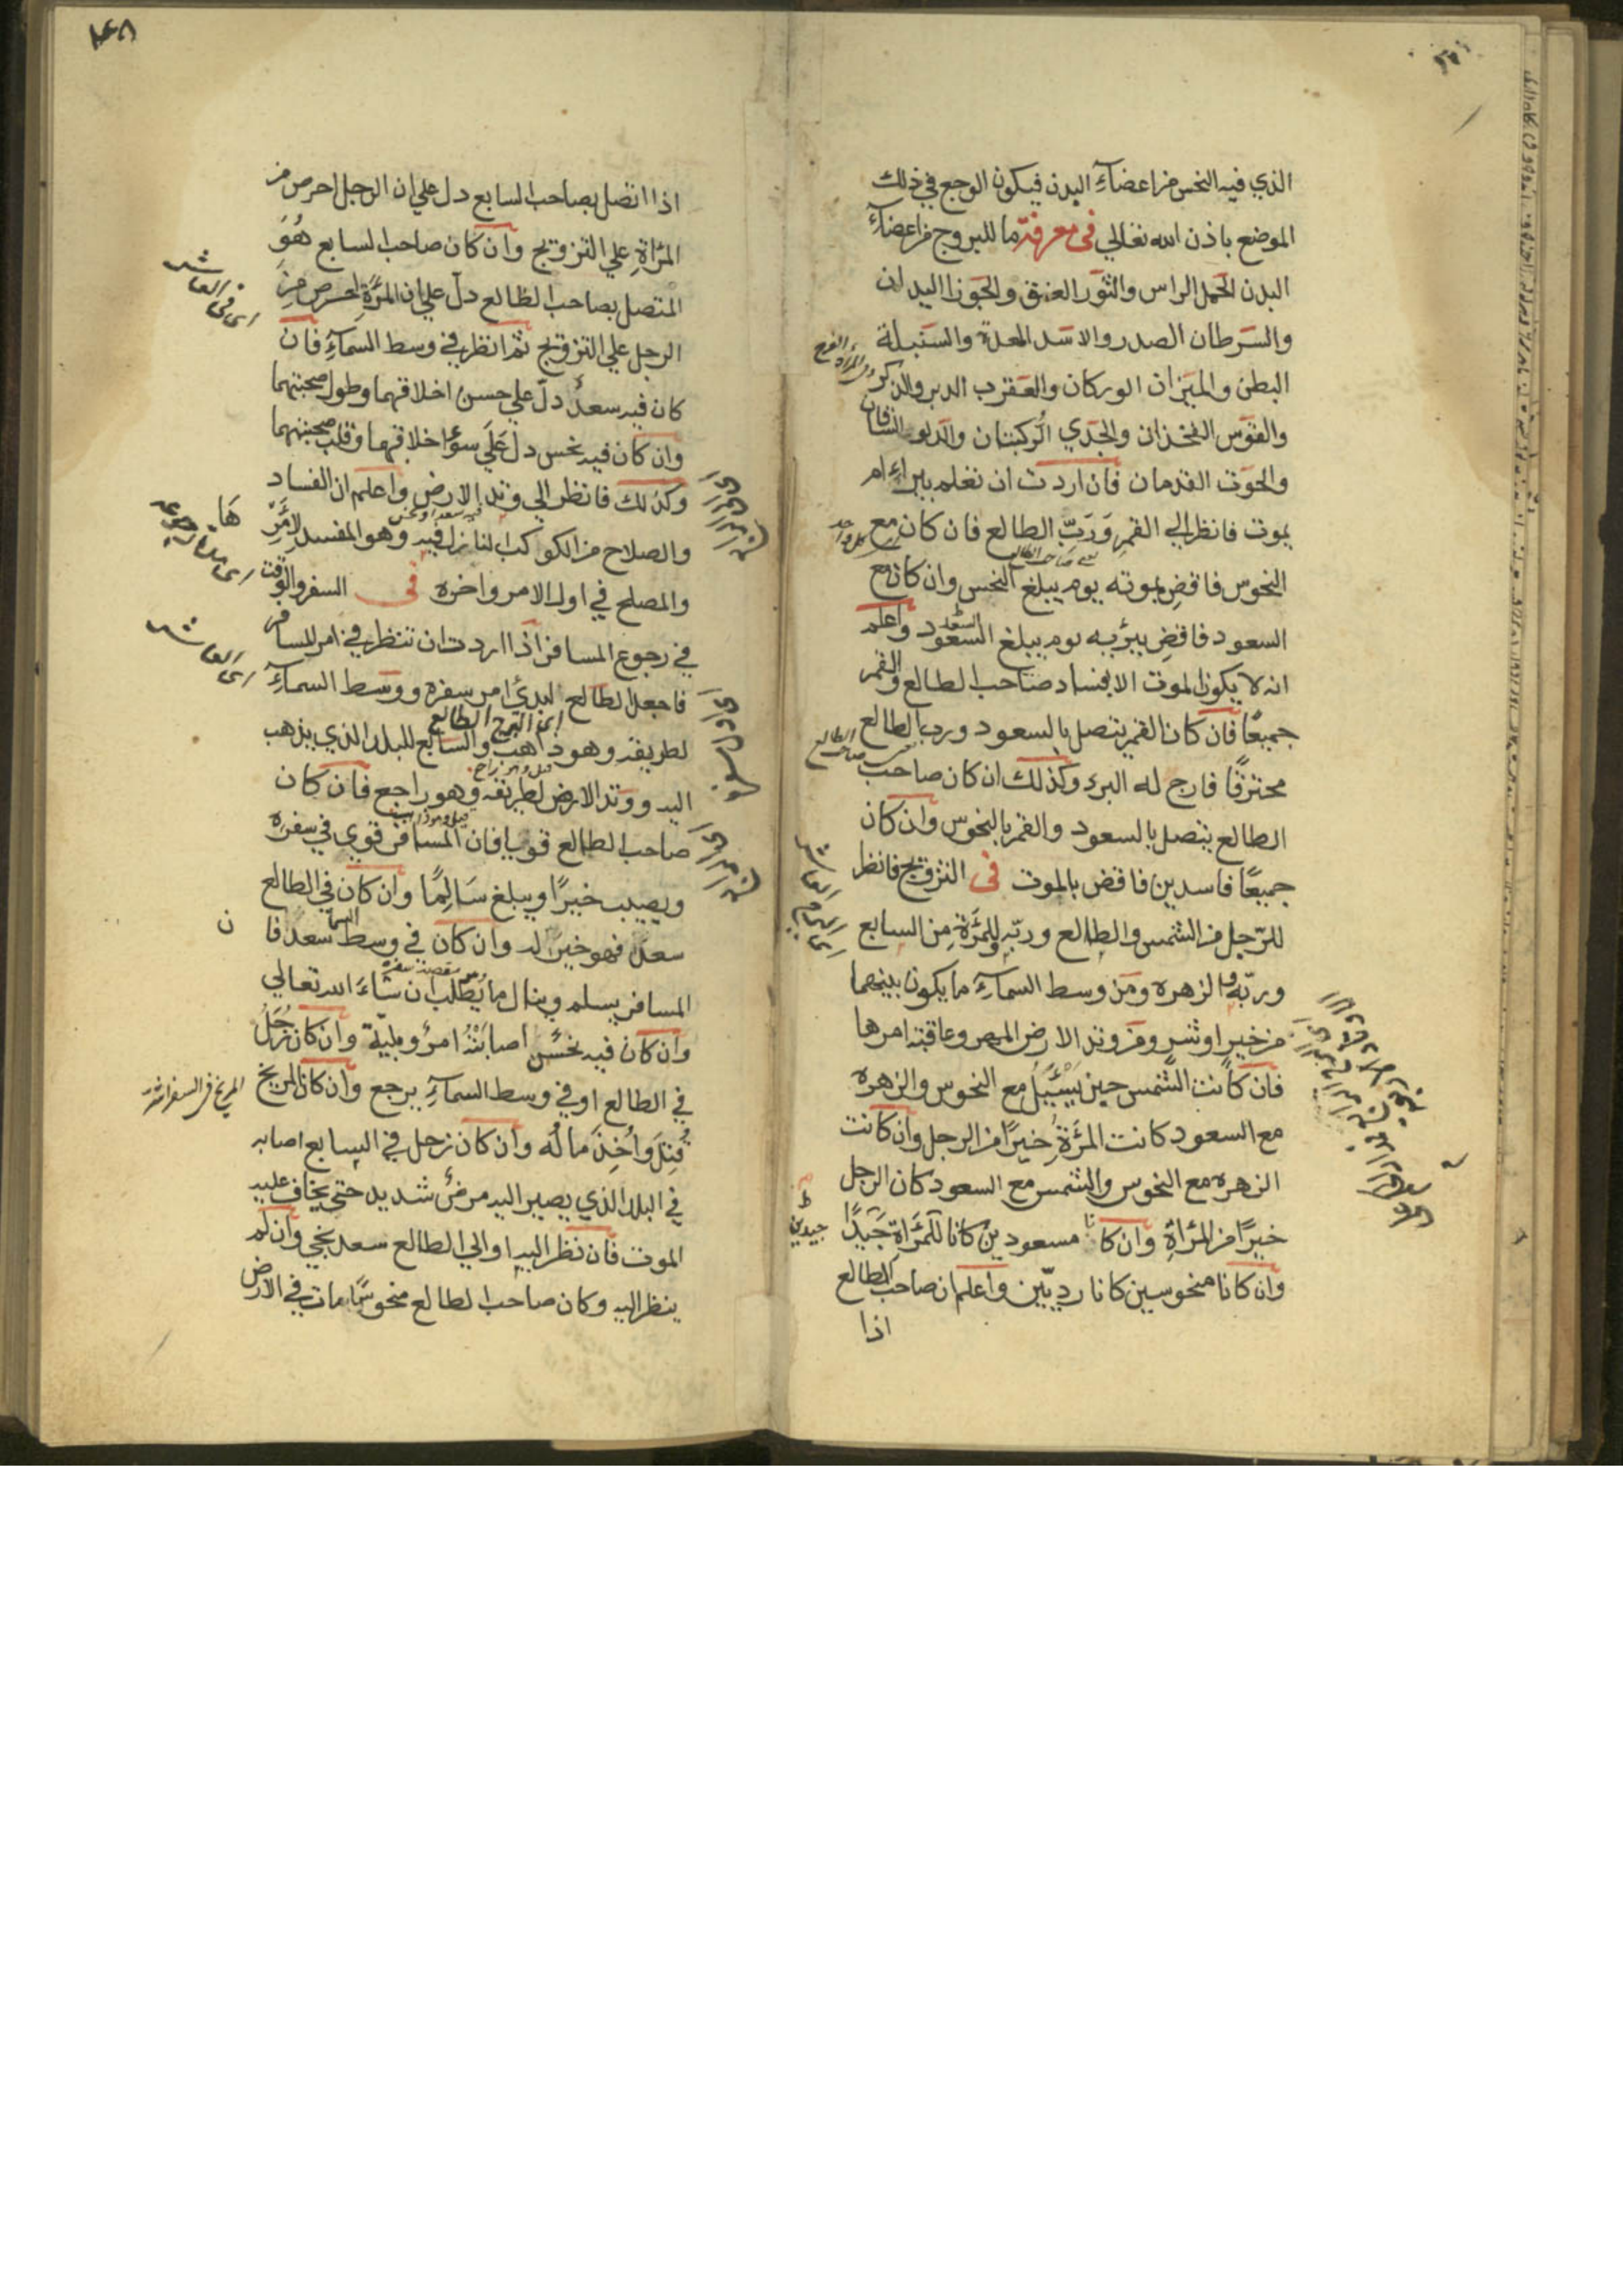 الذي فيه النحس من اعضآء البدن فيكون الوجع في ذلك
الموضع باذن الله تعالي في معرفة ما للبروج من اعضآء
البدن الحمل الراس والثور العنق والجوزا اليدان
والسرطان الصدر والاسد المعدة والسنبلة
البطن والميزان الوركان والعقرب الدبر والذكر ومن المراة الفرج
والقوس الفخذان والجدي الركبتان والدلو الساقان
والحوت القدمان فان اردت ان تعلم يبراء ام
يموت فانظر الي القمر ورب الطالع فان كان مع
النحوس فاقض بموته يوم يبلغ النحس وان كان مع
السعود فاقض ببرئه يوم يبلغ السعود واعلم
انه لا يكون الموت الا بفساد صاحب الطالع والقمر
جميعًا فان كان القمر يتصل بالسعود ورب الطالع
محترقًا فارج له البرء وكذلك ان كان صاحب
الطالع يتصل بالسعود والقمر بالنحوس وان كان
جميعًا فاسدين فاقض بالموت في التزويج فانظر
للرجل من الشمس والطالع وربه وللمرة من السابع
وربه والزهره ومن وسط السمآء ما يكون بينهما
من خير او شر ومن وتد الارض المهر وعاقبة امرها
فان كانت الشمس حين يسئل مع النحوس والزهره
مع السعود كانت المرة خيرًا من الرجل وان كانت
الزهره مع النحوس والشمس مع السعود كان الرجل
خيرًا من المراة وان كانا مسعودين كانا للمراة جيدًا
جيدين
وان كانا منحوسين كانا رديين واعلم ان صاحب الطالع
اذا
١٤٨
اذا اتصل بصاحب السابع دل علي ان الرجل احرص من
المراة علي التزويج وان كان صاحب السابع هو
المتصل بصاحب الطالع دل علي ان المرة احرص من
الرجل علي التزويج ثم انظر في وسط السمآء فان
اى فى العاشر
كان فيه سعد دل علي حسن اخلاقهما وطول صحبتهما
وان كان فيه نحس دل علي سوء اخلاقهما وقلت صحبتهما
وكذلك فانظر الي وتد الارض واعلم ان الفساد
والصلاح من الكواكب النازل فيه وهو المفسد لامر
ها
والمصلح في اول الامر واخره في السفر والوقت
في رجوع المسافر اذا اردت ان تنظر في امر المسافر
فاجعل الطالع لبدئ امر سفره ووسط السمآء
اى العاشر
لطريقه وهو ذاهب والسابع للبلد الذي يذهب
اليه ووتد الارض لطريقه وهو راجع فان كان
صاحب الطالع قويا فان المسافر قوي في سفره
ويصيب خيرًا ويبلغ سالمًا وان كان في الطالع
سعد فهو خير له وان كان في وسط السما سعد فا
ن
المسافر يسلم وينال ما يطلب ان شاء الله تعالي
وان كان فيه نحس اصابته امر وبلية وان كان زحل
في الطالع او في وسط السمآء يرجع وان كان المريخ
المريخ فى السفر اشر
قتل واخذ ماله وان كان زحل في السابع اصابه
في البلد الذي يصير اليه مرض شديد حتي يخاف عليه
الموت فان نظر اليه او الي الطالع سعد نجي وان لم
ينظر اليه وكان صاحب الطالع منحوسًا مات في الارض